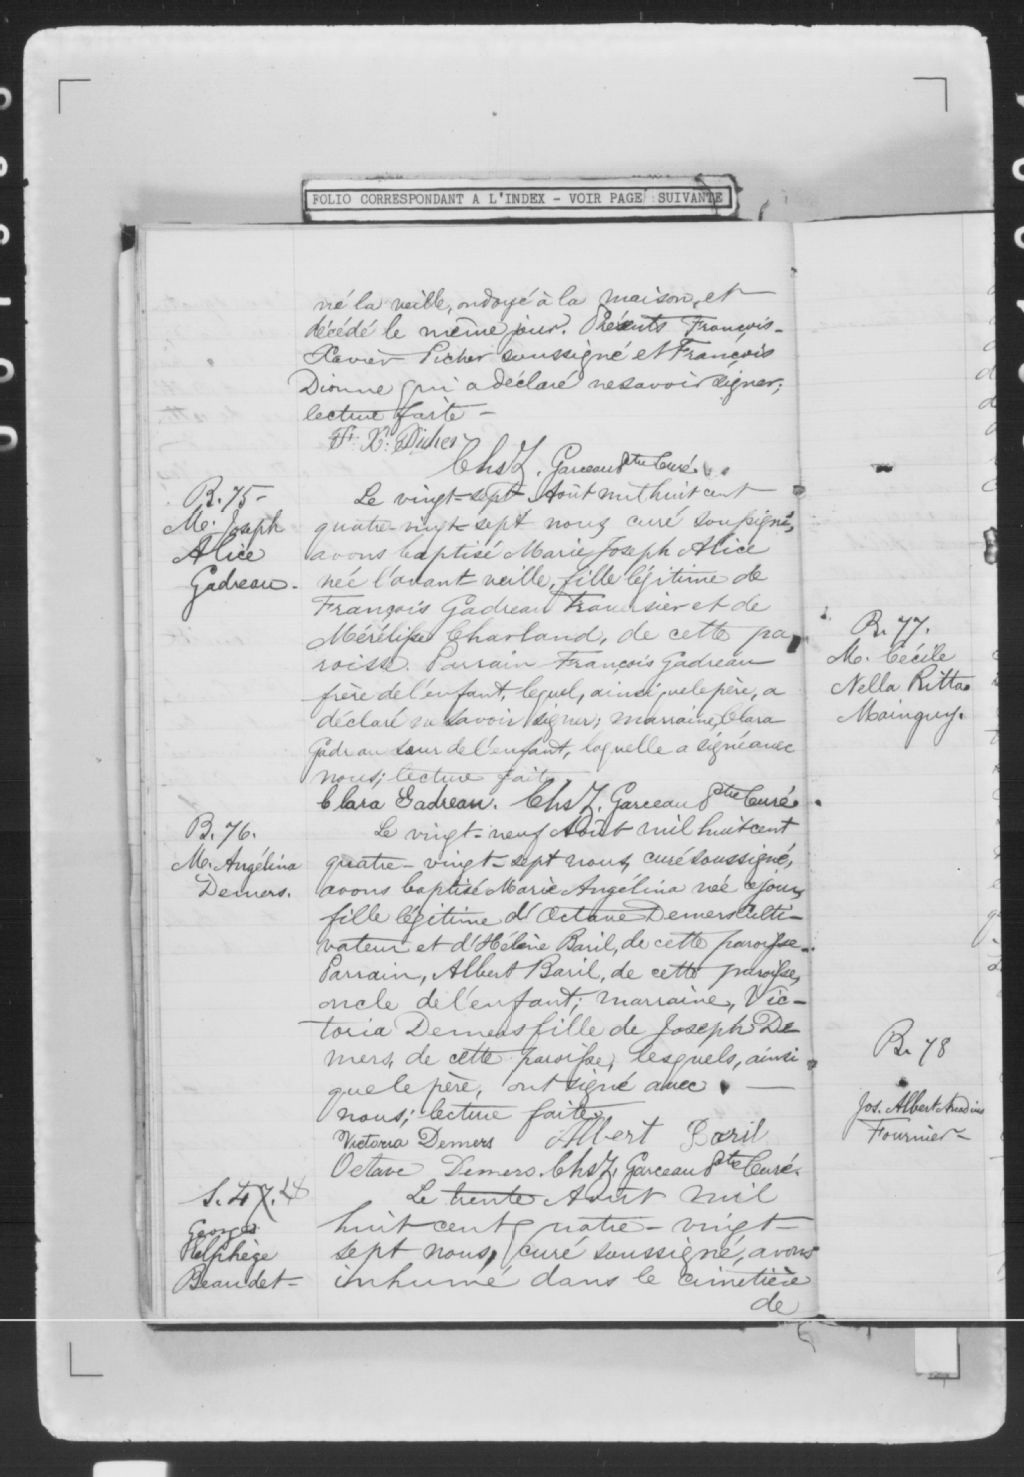 FOLIO CORRESPONDANT A L'INDEX - VOIR PAGE SUIVANTE
né la veille, ondoyé à la maison, et
décédé le même jour. Présents François-
Xavier Picher soussigné et François
Dionne qui a déclaré ne savoir signer;
lecture faite -
F. X. Picher
Chs Z. Garceau Ptre Curé.
B. 75-
M. Joseph
Alice
Gadreau.
Le vingt-sept Août mil huit cent
quatre-vingt-sept nous, curé soussigné,
avons baptisé Marie Joseph Alice
née l'avant-veille, fille légitime de
François Gadreau et de
Mérélisse Charland, de cette pa
roisse. Parrain François Gadreau
frère de l'enfant, lequel, ainsi que le père, a
déclaré ne savoir signer; marraine, Clara
Gadreau sœur de l'enfant, laquelle a signé avec
nous; lecture faite
Clara Gadreau. Chs Z. Garceau Ptre Curé.
B. 76.
M. Angélina
Demers.
Le vingt-neuf Août mil huit cent
quatre-vingt-sept nous, curé soussigné,
avons baptisé Marie Angélina née ce jour,
fille légitime d'Octave Demers Culti-
vateur et d'Hélène Baril, de cette paroisse.
Parrain, Albert Baril, de cette paroisse,
oncle de l'enfant; marraine, Vic-
toria Demers fille de Joseph De
mers, de cette paroisse, lesquels, ainsi
que le père, ont signé avec -
nous; lecture faite,
Victoria Demers Albert Baril
Octave Demers. Chs Z. Garceau Ptre Curé.
S. 47.
Georges
Elphège
Beaudet-
Le trente Août mil
huit cent quatre-vingt-
sept nous, curé soussigné, avons
inhumé dans le cimetière
de
B. 77.
M. Cécile
Nella Ritta
Mainguy.
B. 78
Jos. Albert
Fournier-